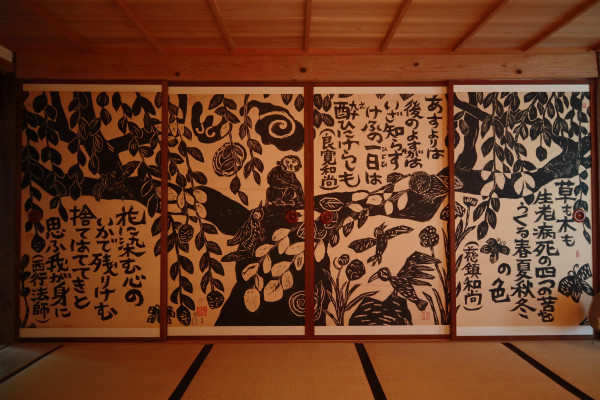 草も木も
生老病死の四つ
うくる春夏秋冬
の色
(慈鎮和尚)
あすよりは
後のよすがは
いざ知らず
けふの一日は
ひとひ
酔ひにけらしも
(良寛和尚)
花に染む心の
いかで残りけむ
捨てはててきと
思ふ我が身に
(西行法師)